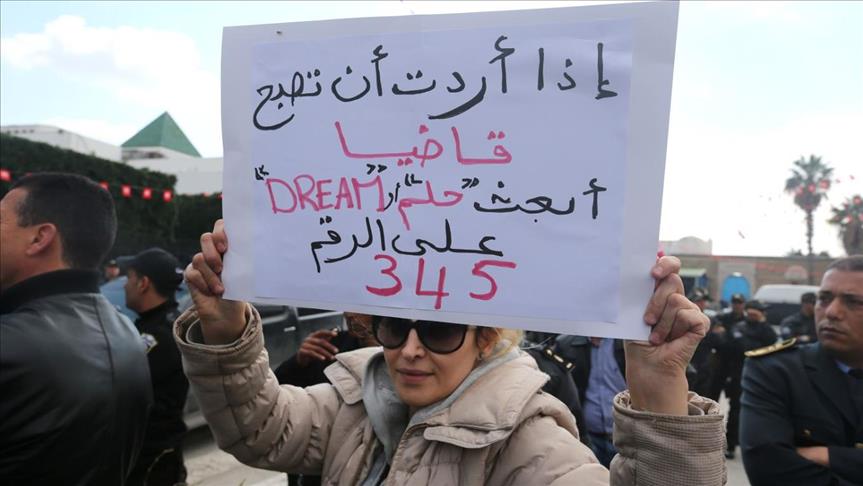 إذا أردت أن تصبح
قاضيا
أبعث "حلم" أو "DREAM"
على الرقم
345